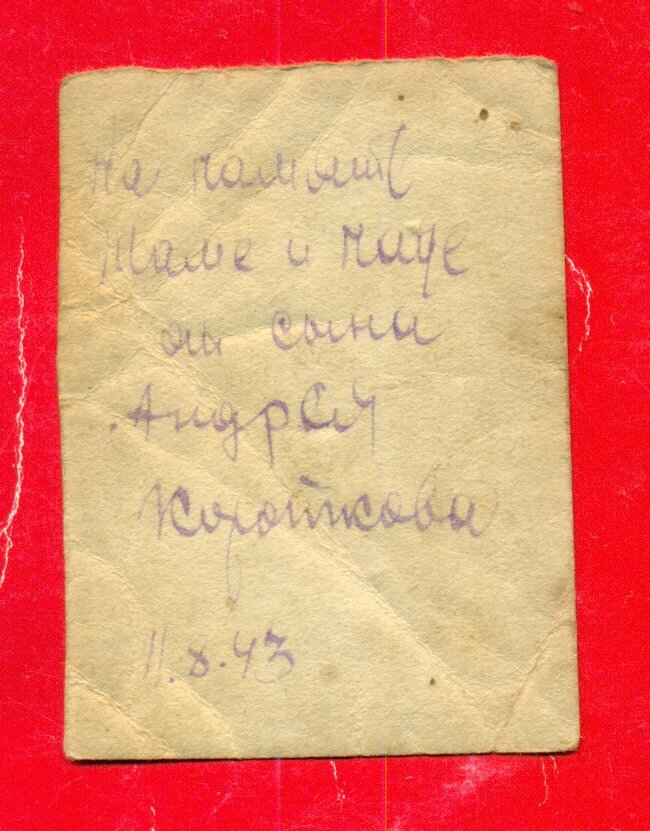 На память
Маме и папе
от сына
Андрей
Короткова
11.8.43